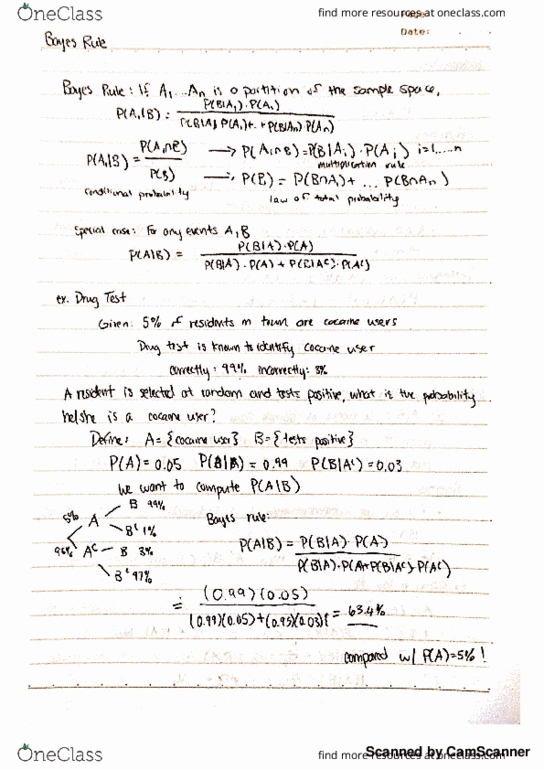 OneClass
find more resources at oneclass.com
Date:
Bayes Rule
Bayes Rule : If A₁...An is a partition of the sample space,
P(A,|B) = P(B|A₁)·P(A₁) / P(B|A₁)P(A₁)+..+P(B|An)P(An)
P(A,|B) = P(A,∩B) / P(B) → P(Ai∩B)=P(B|Ai)·P(Ai) i=1,....n
multiplication rule
→ P(B) = P(B∩A₁)+ ... P(B∩An)
conditional probability law of total probability
Special case: For any events A,B
P(A|B) = P(B|A)·P(A) / P(B|A)·P(A) + P(B|Aᶜ)·P(Aᶜ)
ex. Drug Test
Given: 5% of residents in town are cocaine users
Drug test is known to identify cocaine user
correctly: 99% incorrectly: 3%
A resident is selected at random and tests positive, what is the probability
he/she is a cocaine user?
Define: A={cocaine user} B={tests positive}
P(A)=0.05 P(B|A)=0.99 P(B|Aᶜ)=0.03
We want to compute P(A|B)
5% A B 99%
Bᶜ 1%
Aᶜ B 3%
Bᶜ 97%
Bayes rule:
P(A|B) = P(B|A)·P(A) / P(B|A)·P(A)+P(B|Aᶜ)·P(Aᶜ)
= (0.99)(0.05) / (0.99)(0.05)+(0.95)(0.03) = 63.4%
compared w/ P(A)=5% !
OneClass
find more resources at oneclass.com
Scanned by CamScanner